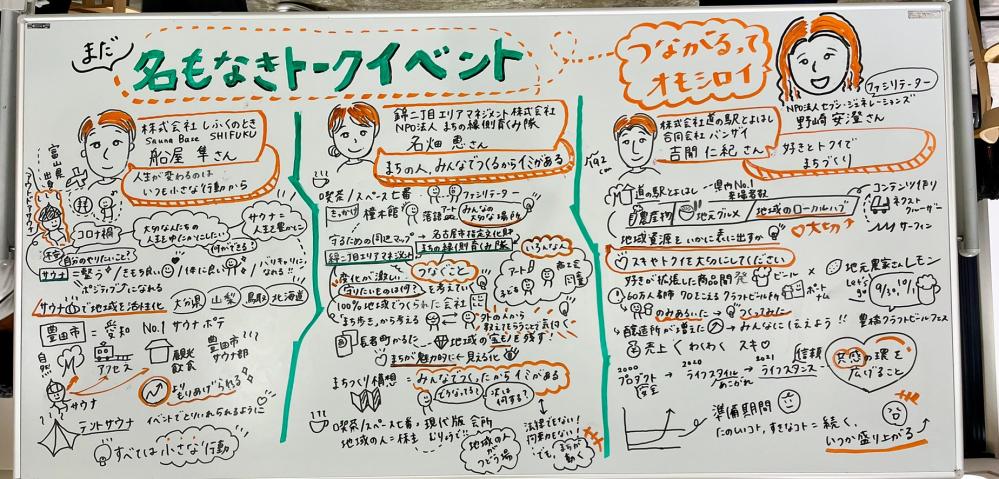 まだ
名もなきトークイベント
つながるって
オモシロイ
ファシリテーター
NPO法人セブン・ジェネレーションズ
野崎 安澄さん
株式会社 しふくのとき
Sauna Base SHIFUKU
船屋 隼さん
人生が変わるのは
いつも小さな行動から
富山県
出身
コロナ禍
大切な人たちの
人生を
サウナ=
人生を豊かに
自分のやりたいこと?
何ができる?
サウナ
きもち良い
体に良い
ポジティブになれる
サウナで地域を活性化
大分県
山梨
鳥取
北海道
豊田市
= 愛知 No.1 サウナポテ
自然
アクセス
観光
飲食
豊田市
サウナ部
サウナ
もりあげられる
テントサウナ
イベントでとりいれられるように
すべては小さな行動
錦二丁目エリアマネジメント株式会社
NPO法人 まちの縁側育くみ隊
石畑 恵さん
まちの人、みんなでつくるからイミがある
喫茶/スペース七番
ファシリテーター
きっかけ
橦木館
落語
みんなの
大切な場所
するための周辺マップ
→ 名古屋市指定文化財
まちの縁側育くみ隊
錦二丁目エリアマネジメント
つなぐこと
いろんな人
変化が激しい
守りたいものは何?を考えていく
アート
子ども
商工会
行政
100%地域でつくられた会社
まち歩き、から考える
外の人から
教えてもらうことで気付く
長者町かるた
地域の宝ものを残す!
まちが魅力的に見える化
まちづくり構想 = みんなでつくったからイミがある
どうなってる?
次は
何する?
喫茶/スペース七番・現代版会所
地域の人=株主
地域の人が
つどう場
法律でない!
約束でもない!
でも、まちが
動く
192
cm
株式会社道の駅とよはし
合同会社バンザイ
吉開 仁紀さん
好きとトクイで
まちづくり
道の駅とよはし
県内No.1
来場者数
農産物
地元グルメ
地域のローカルハブ
大切
コンテンツ作り
ネクスト
クルーザー
サーフィン
地域資源をいかに表に出すか
スキやトクイを大切にしてください
好きが拡張した商品開発
ビール
×
地元農家さんレモン
60万人都市 70こえるクラフトビール醸所
Let's go
9/30,10/1
のみあるいた → つくってみた
醸造所が増えた → みんなに伝えよう!!
豊橋クラフトビールフェス
売上
わくわく
スキ
2000
プロダクト
安全
2020
ライフスタイル
あこがれ
2021
ライフスタンス
信頼
共感の環を
広げること
準備期間
たのしいコト、すきなコト = 続く、
いつか盛り上がる